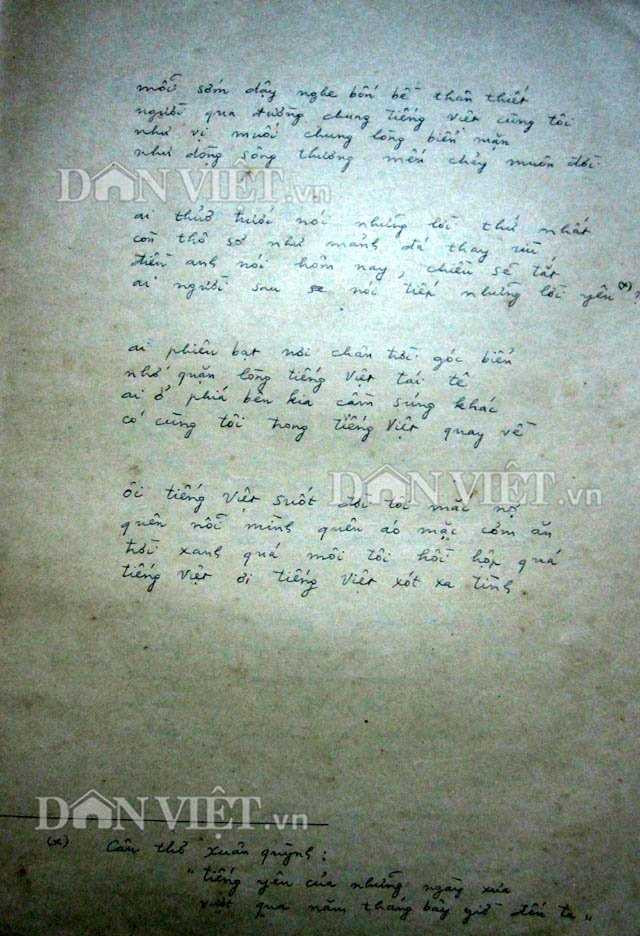 mỗi sớm dậy nghe bốn bề thân thiết
người qua đường chung tiếng Việt cùng tôi
như vị muối chung lòng biển mặn
như dòng sông thương mến chảy muôn đời
DÂN VIỆT.vn
ai thuở trước nói những lời thứ nhất
còn thô sơ như mảnh đá thay rìu
điều anh nói hôm nay, chiều sẽ tắt
ai người sau sẽ nói tiếp những lời yêu (x) ?
ai phiêu bạt nơi chân trời góc biển
nhớ quặn lòng tiếng Việt tái tê
ai ở phía bên kia cầm súng khác
có cùng tôi trong tiếng Việt quay về
DÂN VIỆT.vn
ôi tiếng Việt suốt đời tôi mắc nợ
quên nỗi mình quên áo mặc cơm ăn
trời xanh quá môi tôi hồi hộp quá
tiếng Việt ơi tiếng Việt xót xa tình
DÂN VIỆT.vn
(x) Câu thơ Xuân Quỳnh:
"tiếng yêu của những ngày xưa
vượt qua năm tháng bây giờ đến ta"